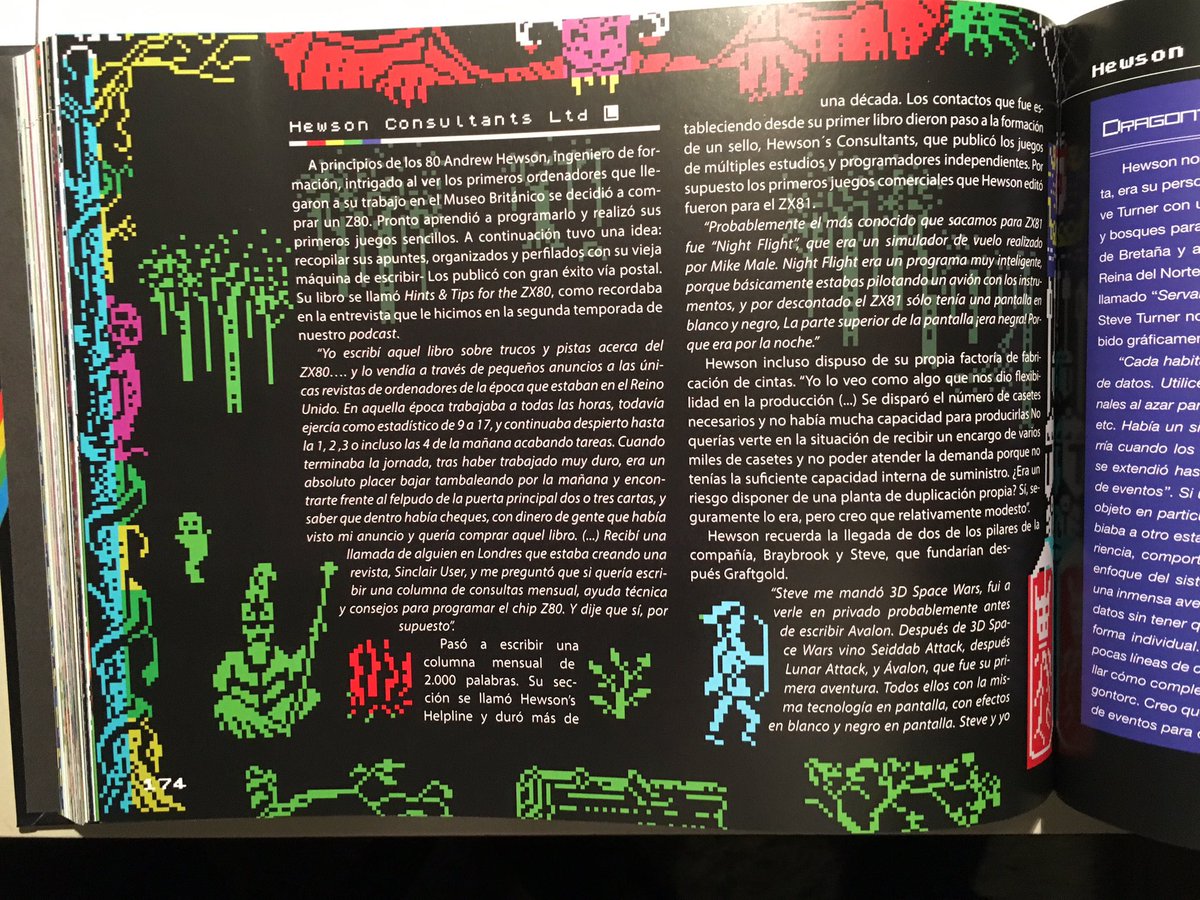 Hewson Consultants Ltd L
A principios de los 80 Andrew Hewson, ingeniero de for-
mación, intrigado al ver los primeros ordenadores que lle-
garon a su trabajo en el Museo Británico se decidió a com-
prar un Z80. Pronto aprendió a programarlo y realizó sus
primeros juegos sencillos. A continuación tuvo una idea:
recopilar sus apuntes, organizados y perfilados con su vieja
máquina de escribir- Los publicó con gran éxito vía postal.
Su libro se llamó Hints & Tips for the ZX80, como recordaba
en la entrevista que le hicimos en la segunda temporada de
nuestro podcast.
"Yo escribí aquel libro sobre trucos y pistas acerca del
ZX80.... y lo vendía a través de pequeños anuncios a las úni-
cas revistas de ordenadores de la época que estaban en el Reino
Unido. En aquella época trabajaba a todas las horas, todavía
ejercía como estadístico de 9 a 17, y continuaba despierto hasta
la 1, 2 ,3 o incluso las 4 de la mañana acabando tareas. Cuando
terminaba la jornada, tras haber trabajado muy duro, era un
absoluto placer bajar tambaleando por la mañana y encon-
trarte frente al felpudo de la puerta principal dos o tres cartas, y
saber que dentro había cheques, con dinero de gente que había
visto mi anuncio y quería comprar aquel libro. (...) Recibí una
llamada de alguien en Londres que estaba creando una
revista, Sinclair User, y me preguntó que si quería escri-
bir una columna de consultas mensual, ayuda técnica
y consejos para programar el chip Z80. Y dije que sí, por
supuesto".
Pasó a escribir una
columna mensual de
2.000 palabras. Su sec-
ción se llamó Hewson's
Helpline y duró más de
174
una década. Los contactos que fue es-
tableciendo desde su primer libro dieron paso a la formación
de un sello, Hewson´s Consultants, que publicó los juegos
de múltiples estudios y programadores independientes. Por
supuesto los primeros juegos comerciales que Hewson editó
fueron para el ZX81.
"Probablemente el más conocido que sacamos para ZX81
fue "Night Flight", que era un simulador de vuelo realizado
por Mike Male. Night Flight era un programa muy inteligente,
porque básicamente estabas pilotando un avión con los instru-
mentos, y por descontado el ZX81 sólo tenía una pantalla en
blanco y negro, La parte superior de la pantalla ¡era negra! Por-
que era por la noche."
Hewson incluso dispuso de su propia factoría de fabri-
cación de cintas. "Yo lo veo como algo que nos dio flexibi-
lidad en la producción (...) Se disparó el número de casetes
necesarios y no había mucha capacidad para producirlas No
querías verte en la situación de recibir un encargo de varios
miles de casetes y no poder atender la demanda porque no
tenías la suficiente capacidad interna de suministro. ¿Era un
riesgo disponer de una planta de duplicación propia? Sí, se-
guramente lo era, pero creo que relativamente modesto".
Hewson recuerda la llegada de dos de los pilares de la
compañía, Braybrook y Steve, que fundarían des-
pués Graftgold.
"Steve me mandó 3D Space Wars, fui a
verle en privado probablemente antes
de escribir Avalon. Después de 3D Spa-
ce Wars vino Seiddab Attack, después
Lunar Attack, y Ávalon, que fue su pri-
mera aventura. Todos ellos con la mis-
ma tecnología en pantalla, con efectos
en blanco y negro en pantalla. Steve y yo
Hewson
Hewson no
ta, era su
ve Turner con
y bosques para
de Bretaña y
Reina del Norte
llamado
Steve Turner no
bido
"Cada
de datos.
nales al azar
etc. Había un
rría cuando los
se extendió
de eventos". Si
objeto en
biaba a otro
riencia,
enfoque del
una inmensa
datos sin tener
forma individual.
pocas líneas de
llar cómo
gontorc. Creo
de eventos para